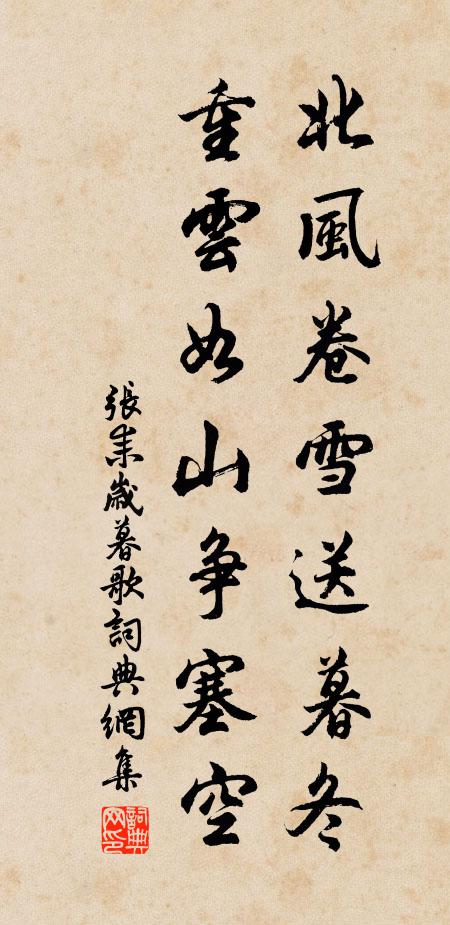 北風卷雪送暮冬
重雲如山争塞空
張耒歲暮歌詞典網集
詞典網印